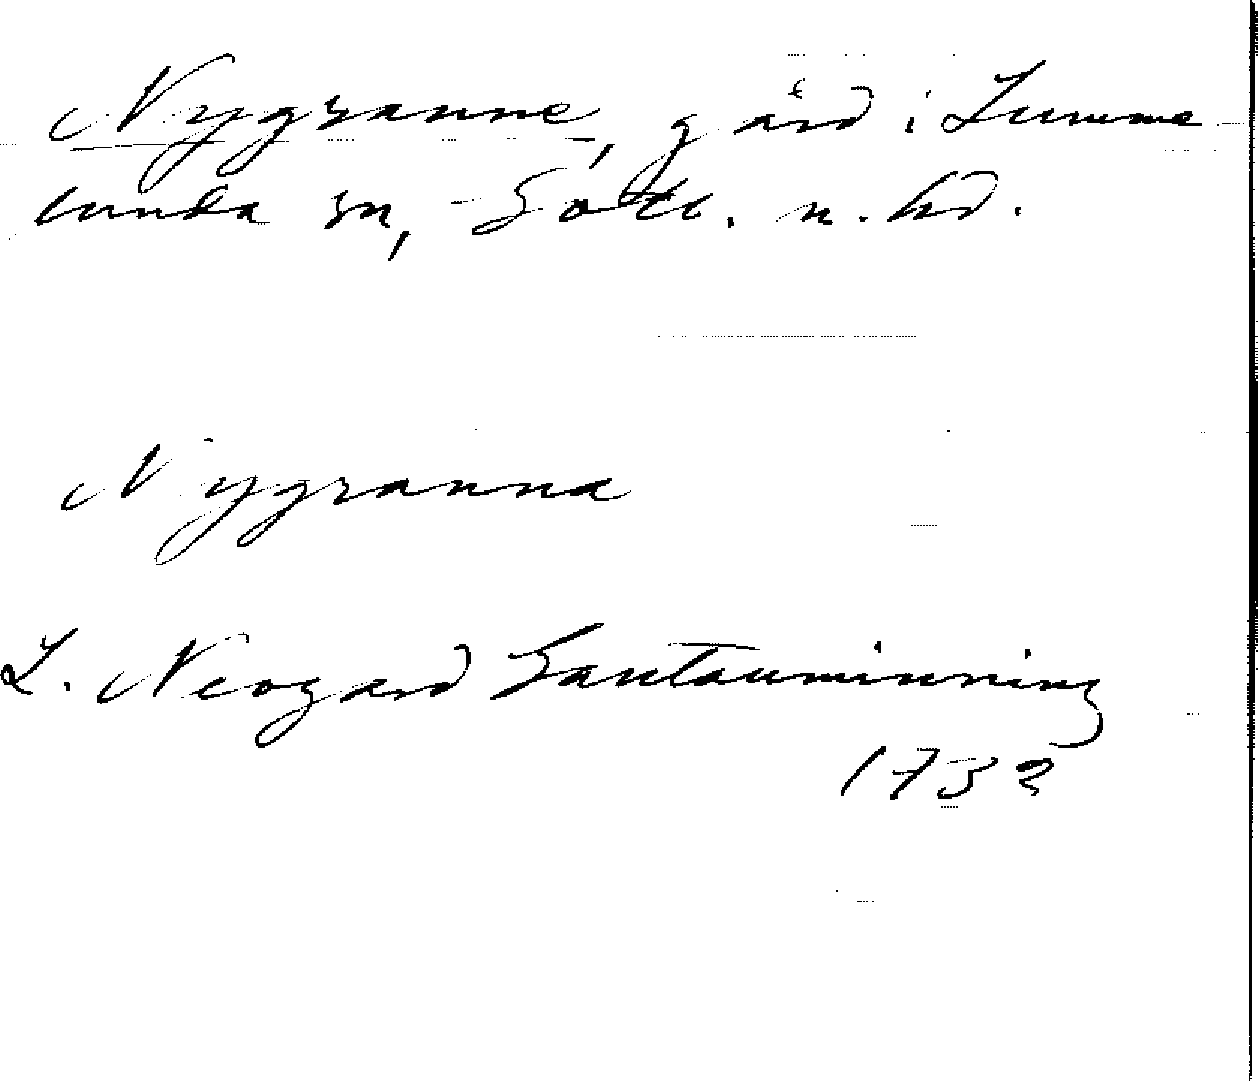 Nygranne, gård i Lumme
lunda sn, Gotl. n. hd.
Nygranna
L. Neogard Gautauminning
1732